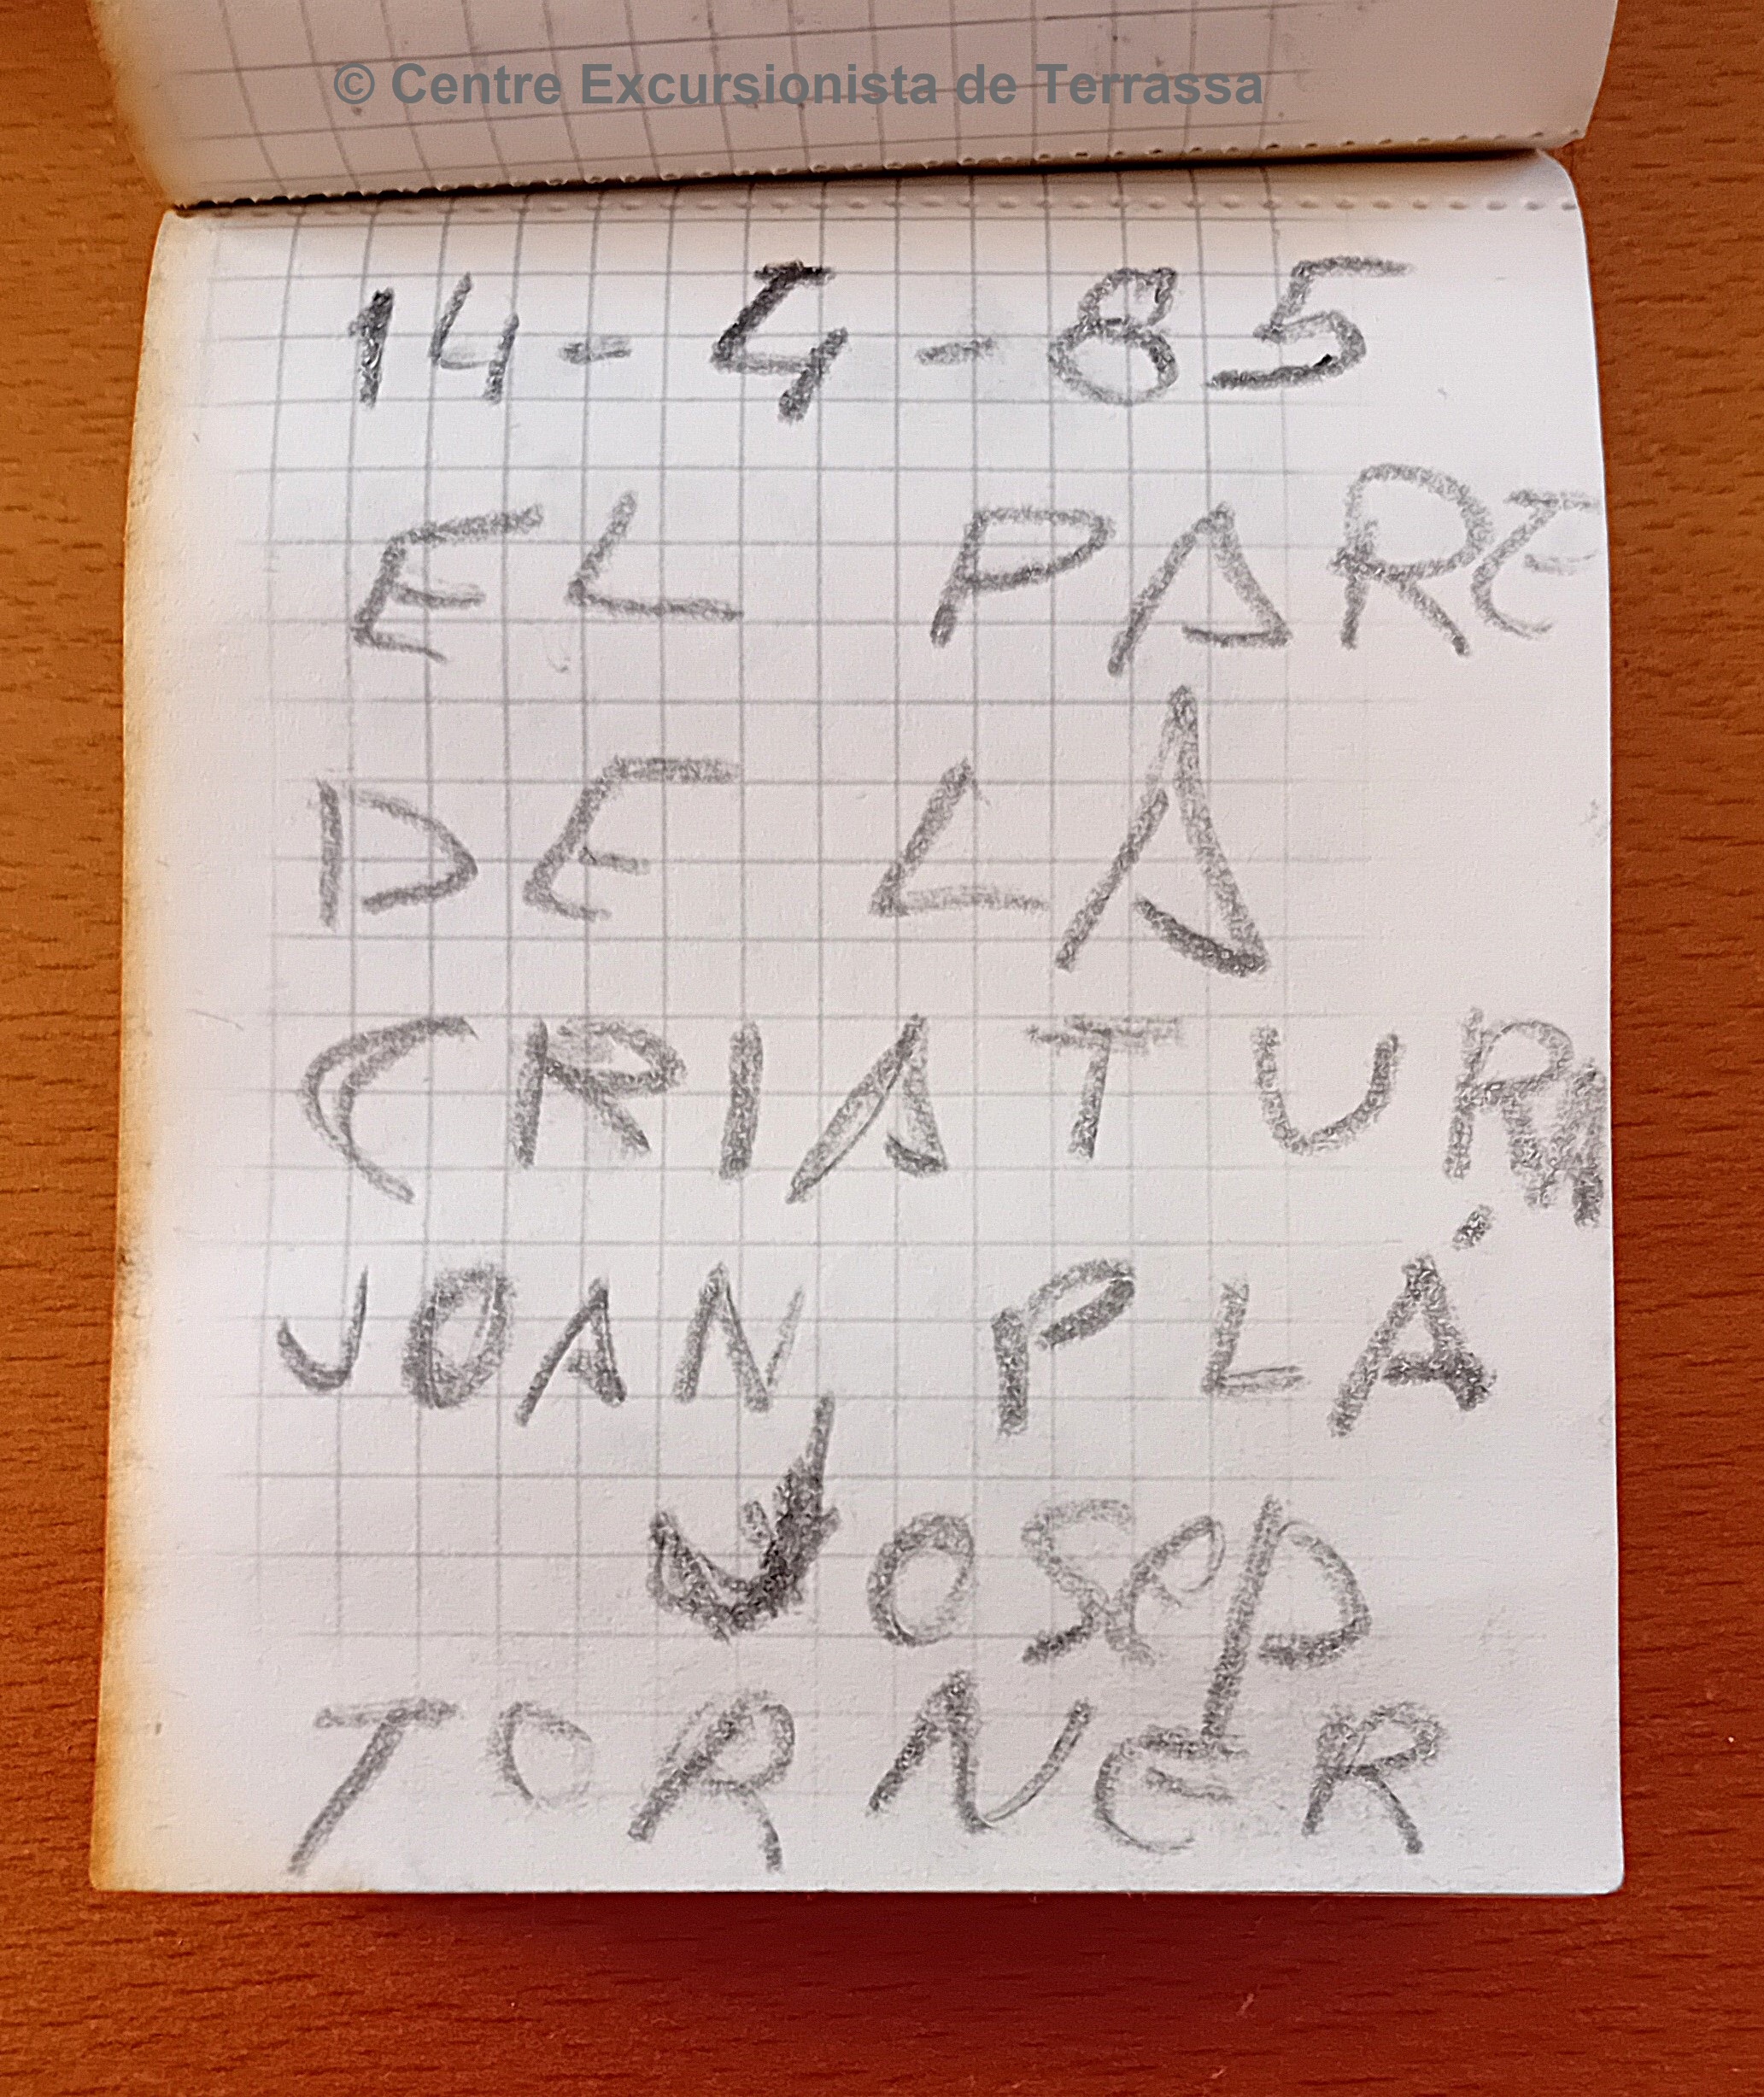 © Centre Excursionista de Terrassa
14-4-85
EL PARE
DE LA
CRIATURA
JOAN PLÁ
JOSEP
TORNER